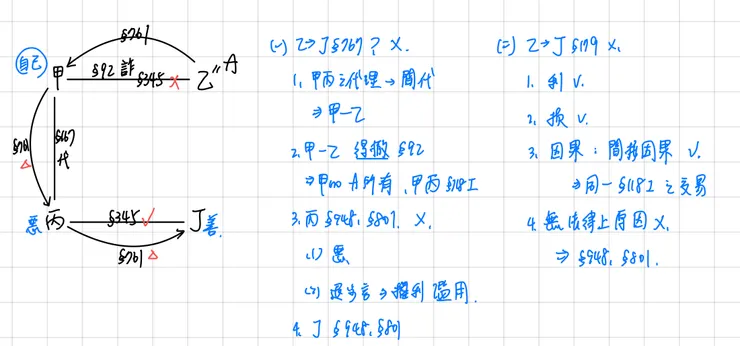 §761
自己
甲
§92 詐
§345 ×
乙" A
§761
△
§167
代
惡 丙
§345 ✓
丁 善
§761 △
(一) 乙→丁 §767? ×.
1. 甲丙之代理→間代
⇒甲—乙
2. 甲—乙 得撤 §92
⇒甲no A所有, 甲丙 §118I
3. 丙 §948, §801. ×.
(1) 惡
(2) 善⇒權利濫用.
4. 丁 §948, §801
(二) 乙→丁 §179 ×.
1. 利 ∨.
2. 損 ∨.
3. 因果: 間接因果 ∨.
⇒同一 §118I 之交易
4. 無法律上原因 ×.
⇒ §948, §801.